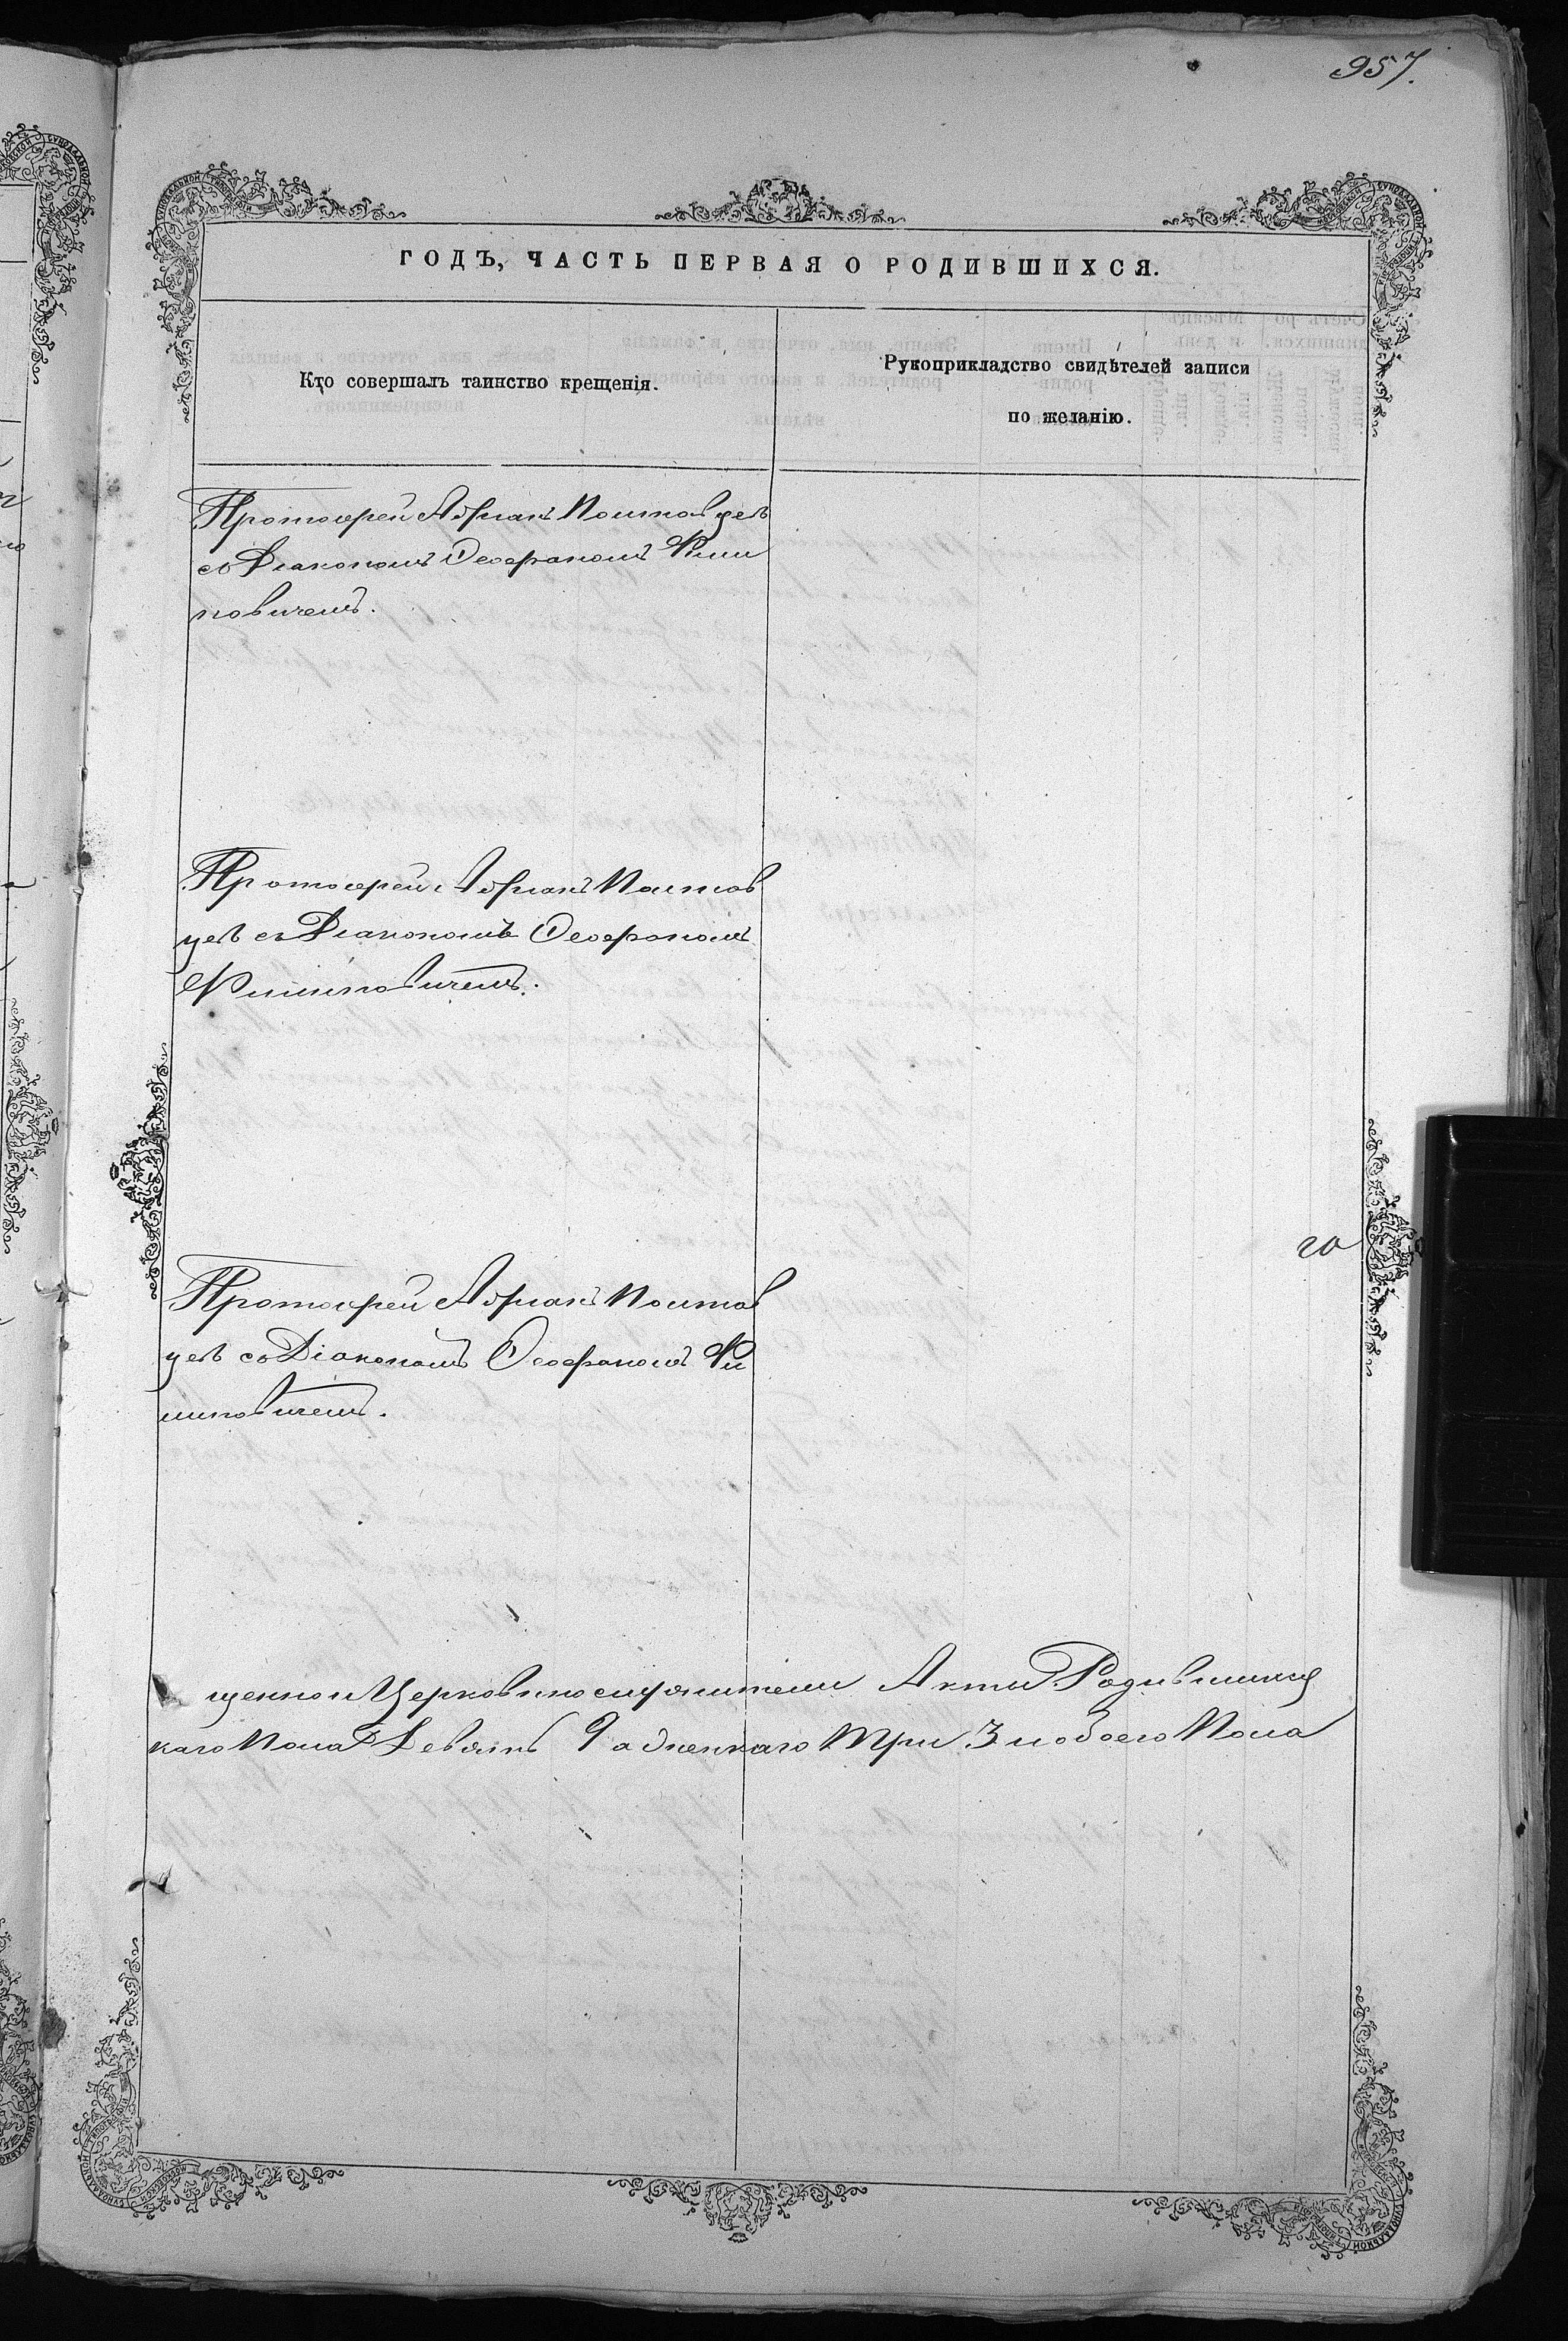 957.
ГОДЪ, ЧАСТЬ ПЕРВАЯ О РОДИВШИХСЯ.
Кто совершалъ таинство крещенія.
Рукоприкладство свидѣтелей записи
по желанію.
Протоіерей Адріанъ Полтавцевъ
съ Діакономъ Ѳеофаномъ Фили
повичемъ.
Протоіерей Адріанъ Полтав
цевъ съ Діакономъ Ѳеофаномъ
Филиповичемъ.
Протоіерей Адріанъ Полтав
цевъ съ Діакономъ Ѳеофаномъ Фи
липовичемъ.
щенно и Церковнослужители Акты Родившихся
каго Пола Девять 9 а женскаго три 3 и обоего Пола